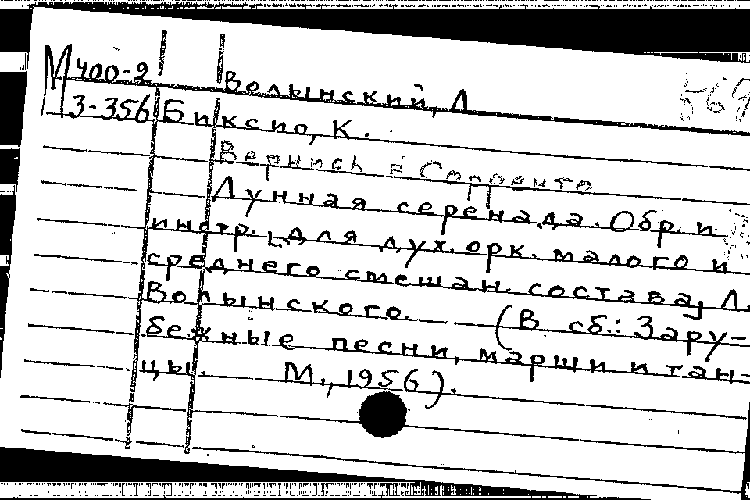 М 400-2 Волынский, Л
3-356 Биксио, К.
Вернись в Сорренто
Лунная серенада. Обр. и
инстр. [для дух. орк. малого и
среднего смешан. состава] Л.
Волынского. (В сб.: Зару-
бежные песни, марши и тан-
цы. М., 1956).